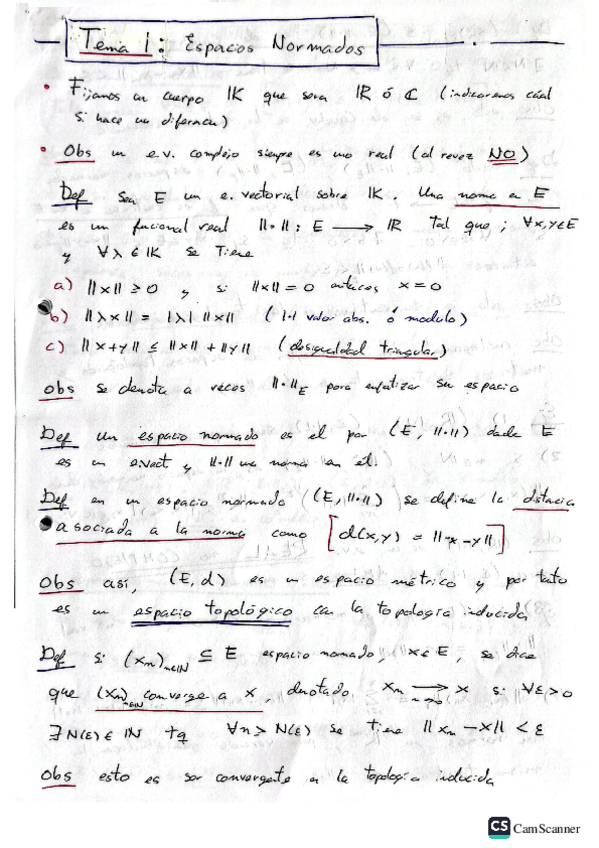 Tema 1: Espacios Normados
• Fijamos un cuerpo IK que sera IR ó ℂ (indicaremos cuál
si hace una diferencia)
• Obs un e.v. complejo siempre es uno real (al revez NO)
Def Sea E un e. vectorial sobre IK. Una norma en E
es un funcional real ||·||: E → IR tal que ; ∀x,y∈E
y ∀λ∈IK se tiene
a) ||x|| ≥ 0 y si ||x|| = 0 entonces x = 0
b) ||λx|| = |λ| ||x|| (|·| valor abs. ó modulo)
c) ||x+y|| ≤ ||x|| + ||y|| (desigualdad triangular)
obs se denota a veces ||·||_E para enfatizar su espacio
Def Un espacio normado es el par (E, ||·||) donde E
es un e.vect y ||·|| una norma en él.
Def en un espacio normado (E, ||·||) se define la distancia
asociada a la norma como [d(x,y) = ||x-y||]
Obs así, (E,d) es un espacio métrico y por tanto
es un espacio topológico con la topología inducida
Def si (x_n)_{n∈IN} ⊆ E espacio normado, x∈E, se dice
que (x_n)_{n∈IN} converge a x, denotado x_n →_{n→∞} x si ∀ε>0
∃N(ε)∈IN tq ∀n>N(ε) se tiene ||x_n - x|| < ε
Obs esto es ser convergente en la topología inducida
CS CamScanner